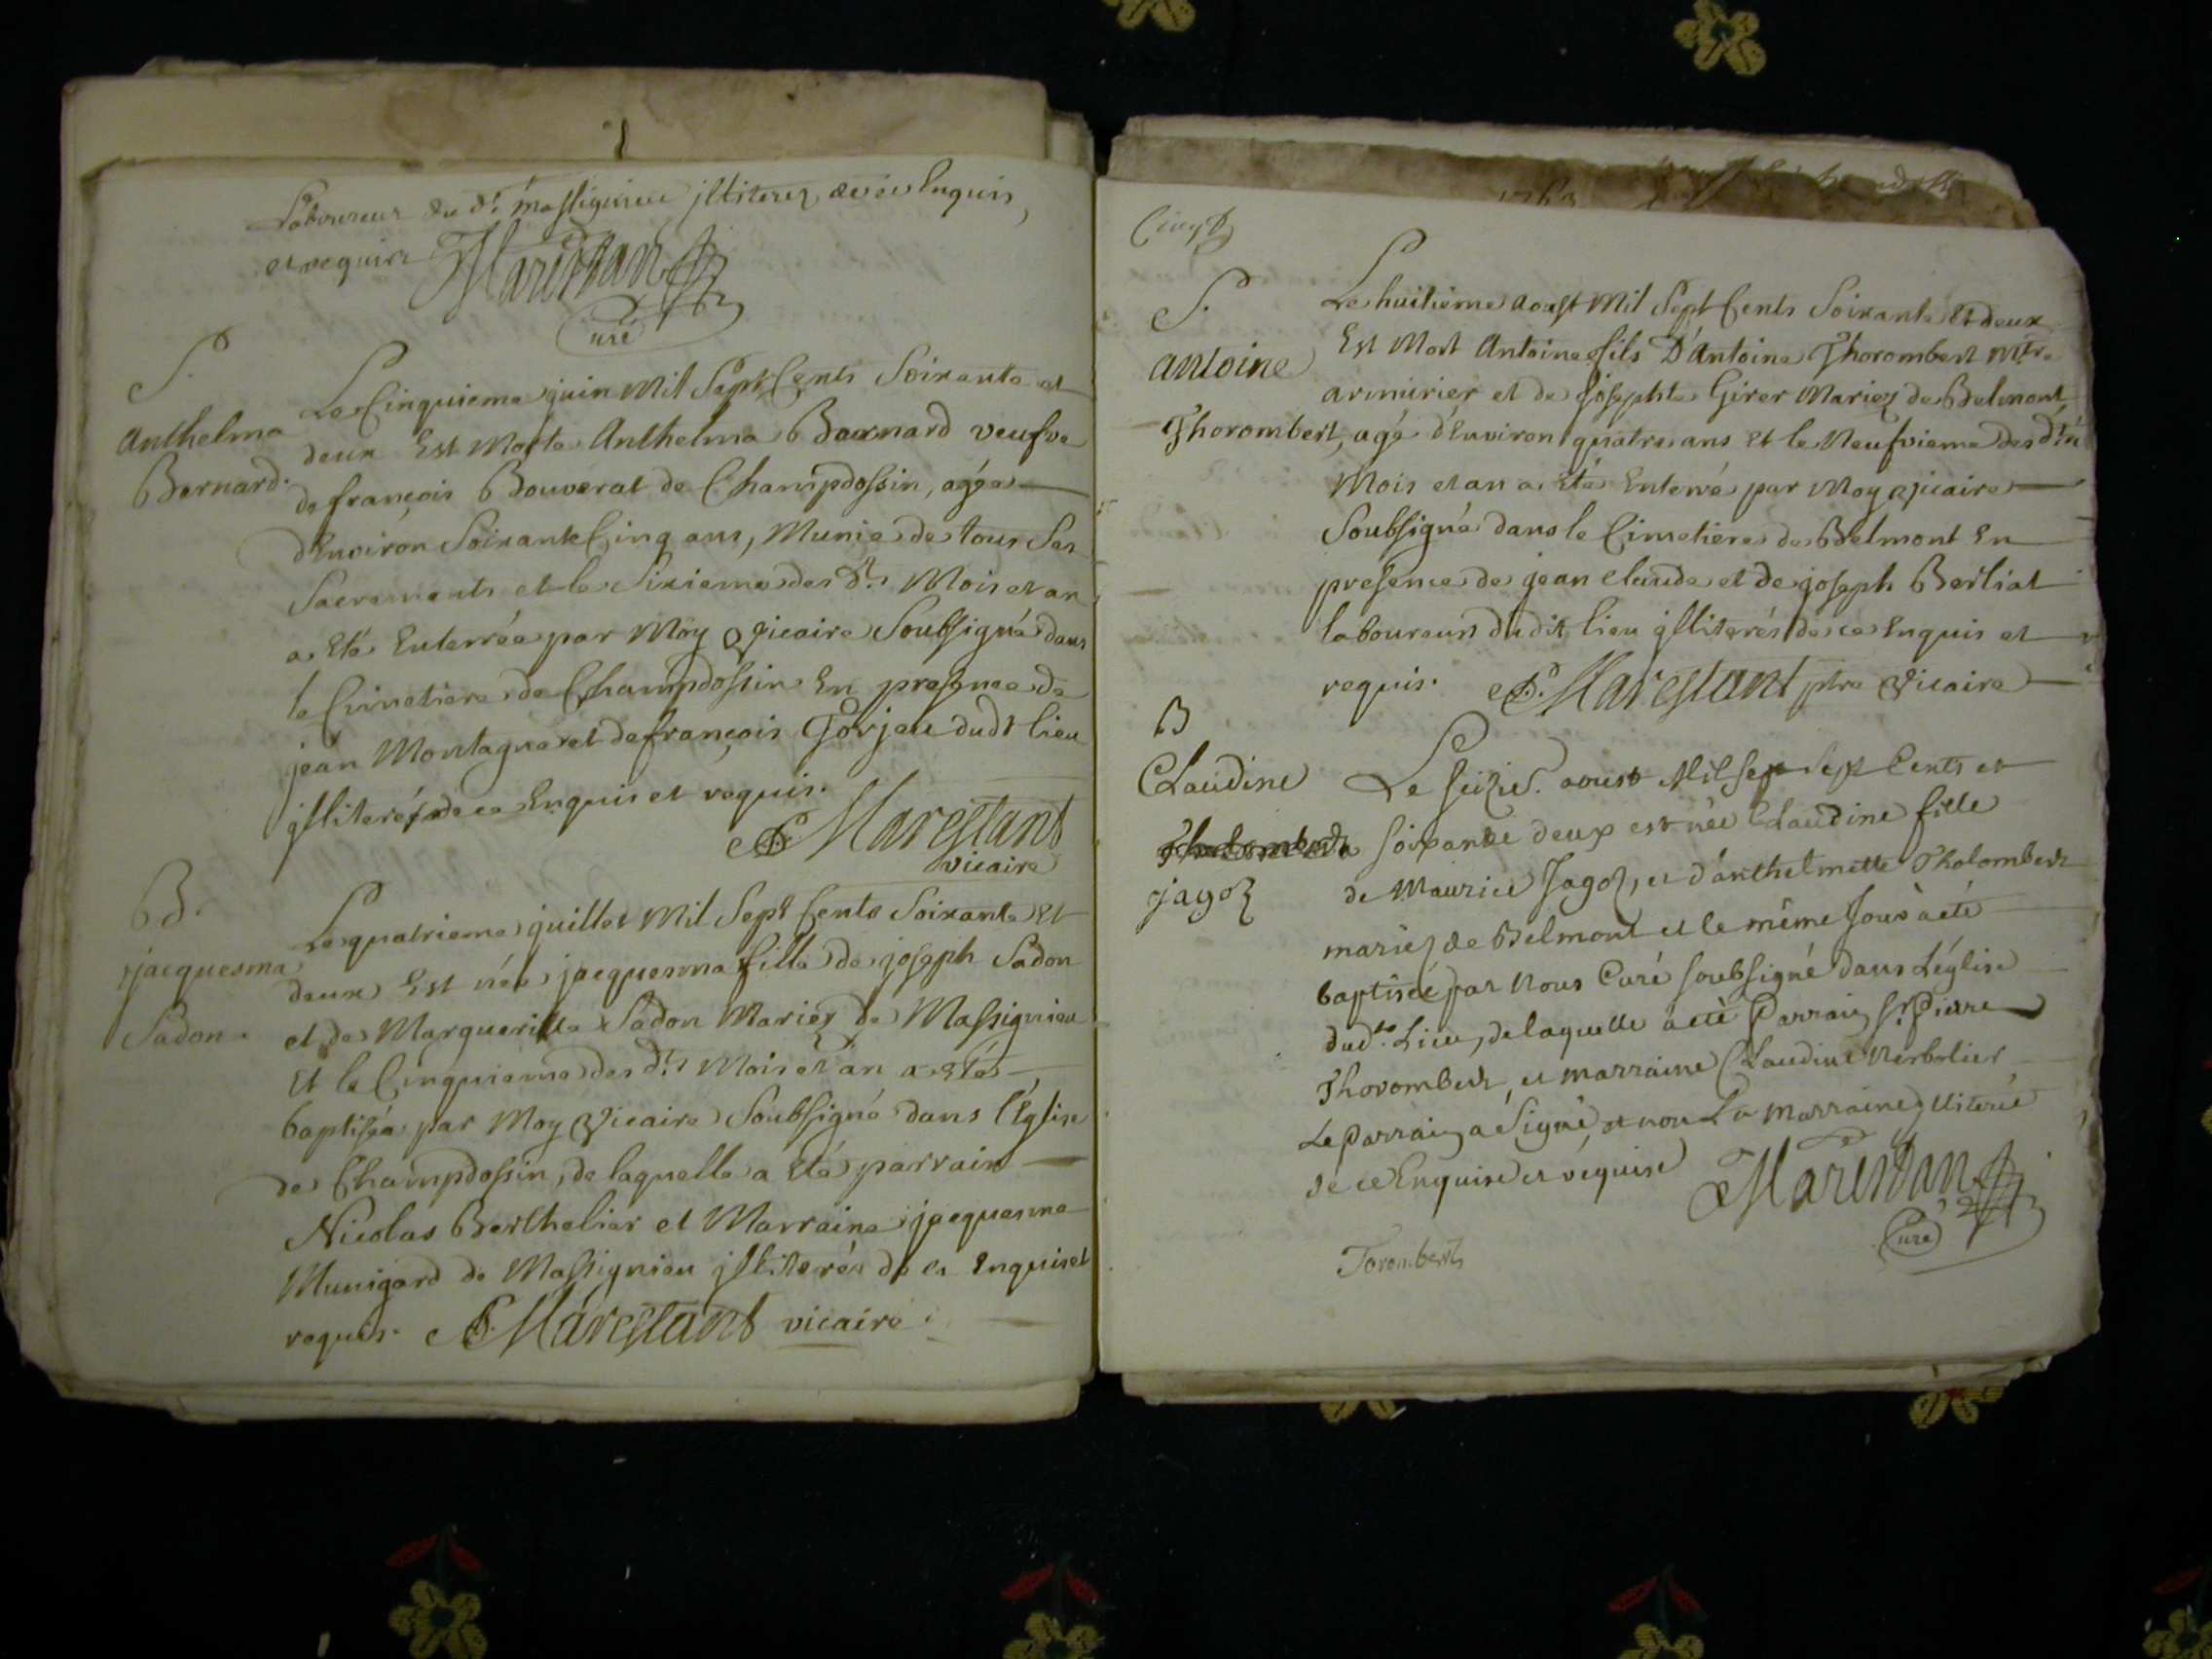 Laboureur du dt. massignieu jlliterez de ce Enquis,
et requis Marestan
Curé
S.
Anthelma
Bernard.
Le Cinquieme juin Mil Sept Cents Soixante et
deux Est Morte Anthelma Barnard veufve
de françois Bouverat de Champdossin, agée
d'Environ Soixante Cinq ans, Munie de tous Ses
Sacrements et le Sixieme des dts Mois et an
a Eté Enterrée par Moy Vicaire Soubsigné dans
le Cimetiere de Champdossin En presence de
jean Montagnaret de françois Gorjeu dudt lieu
jlliterés de ce Enquis et requis.
Marestant
vicaire
B.
jacquesma
Sadon.
Le quatrieme juillet Mil Sept Cents Soixante Et
deux Est née jacquesma fille de joseph Sadon
et de Marguerite Sadon Mariez de Massignieu
Et le Cinquieme des dts Mois et an a Eté
baptisée par Moy Vicaire Soubsigné dans l'Eglise
de Champdossin, de laquelle a Eté parrain
Nicolas Berthelier et Marraine jacquesma
Munigard de Massignieu jlliterés de ce Enquis et
requis. Marestant vicaire.
S.
antoine
Thorombert,
Le huitieme aoust Mil Sept Cents Soixante Et deux
Est Mort Antoine fils D'Antoine Thorombert Mtre
armurier et de Josephte Girer Mariez de Belmont,
agé d'Environ quatre ans Et le Neufvieme des dts
Mois et an a Eté Enterré par Moy vicaire
Soubsigné dans le Cimetiere de Belmont En
presence de jean claude et de joseph Berliat
laboureurs dudit lieu jlliterés de ce Enquis et
requis. Marestant ptre Vicaire
B
Claudine
jagoz
Le seizie. aoust Mil sep sept Cents et
soixante deux est née Claudine fille
de Maurice Jagoz, et d'anthelmette Tholombert
mariez de Belmont et le même Jour à eté
baptisée par Nous Curé soubsigné dans L'église
dudt. Lieu, de laquelle à eté Parrain sr. Pierre
Thorombert, et marraine Claudine Berbelier
Le Parrain a Signé, et non La Marraine jlliterée
de ce Enquise et requise Marestan
Curé
Torombert